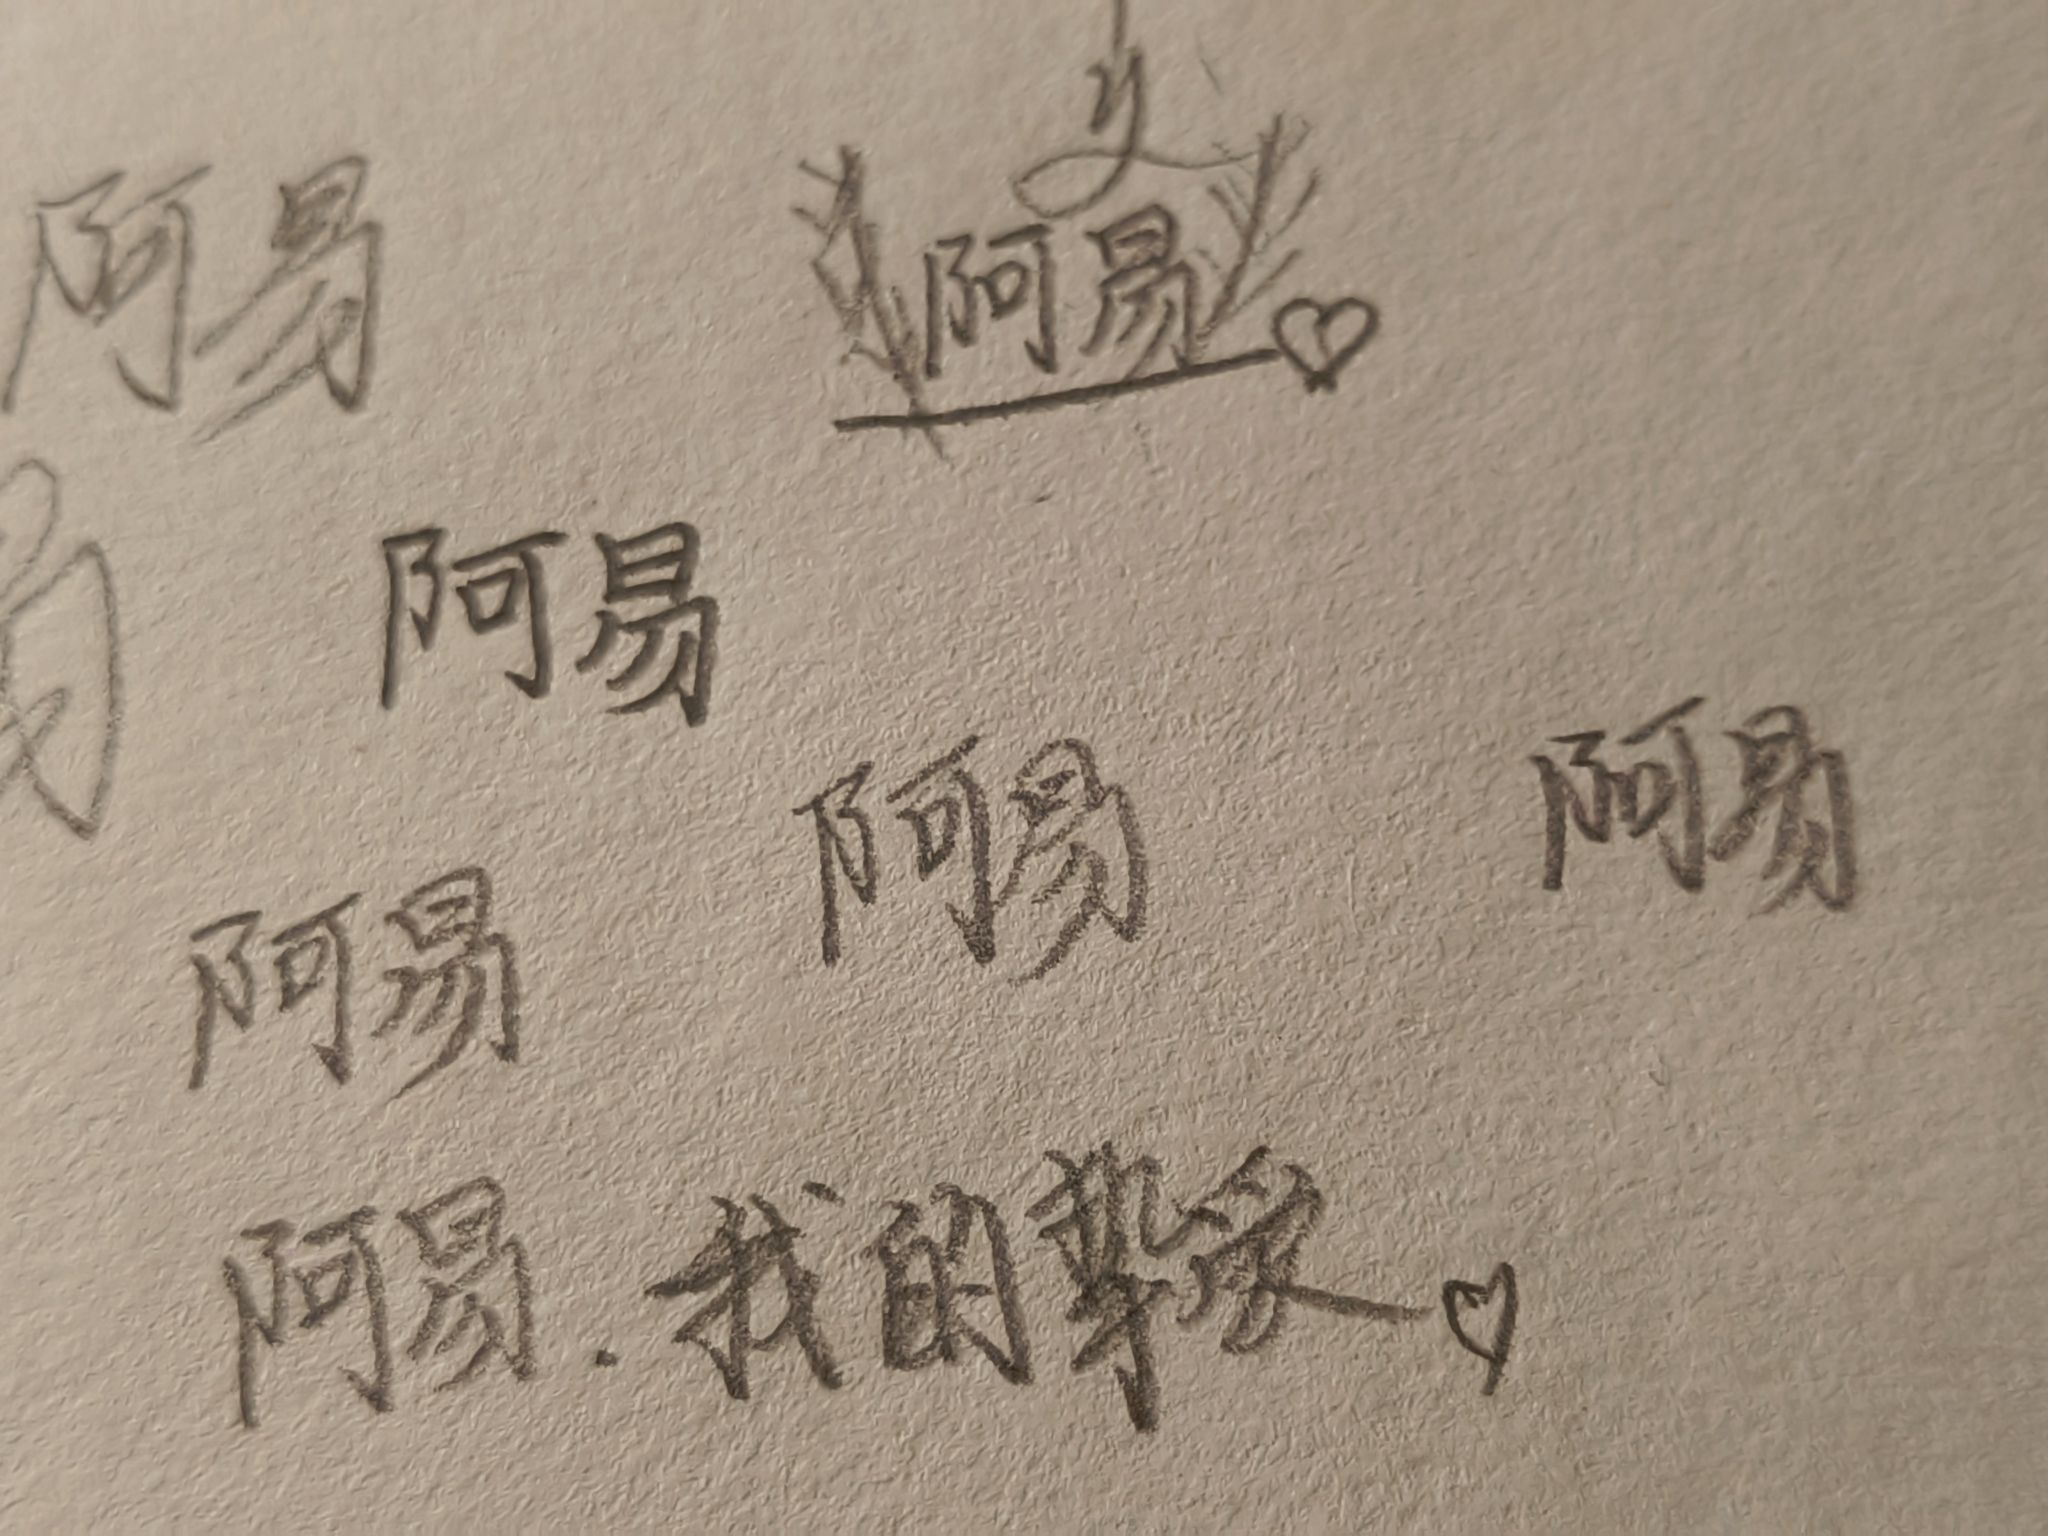 阿易
阿易
易
阿易
阿易
阿易
阿易
阿易.我的挚爱